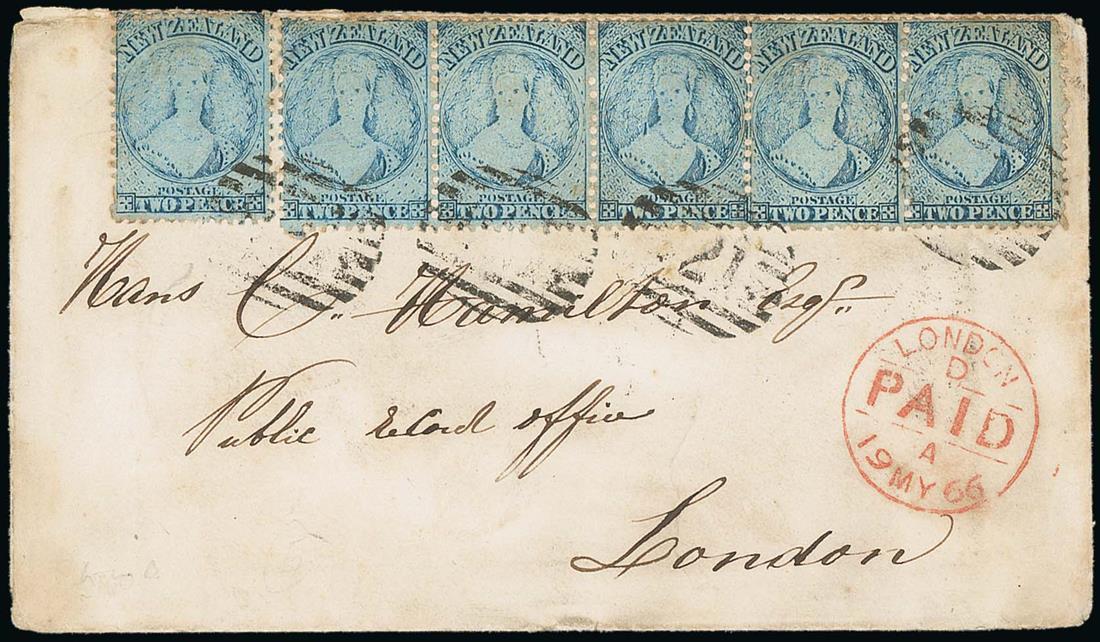 NEW ZEALAND NEW ZEALAND NEW ZEALAND NEW ZEALAND NEW ZEALAND NEW ZEALAND
POSTAGE POSTAGE POSTAGE POSTAGE POSTAGE POSTAGE
TWO PENCE TWO PENCE TWO PENCE TWO PENCE TWO PENCE TWO PENCE
21
Hans C. Hamilton Esqr.
Public Record Office
London
LONDON
D
PAID
A
19 MY 66